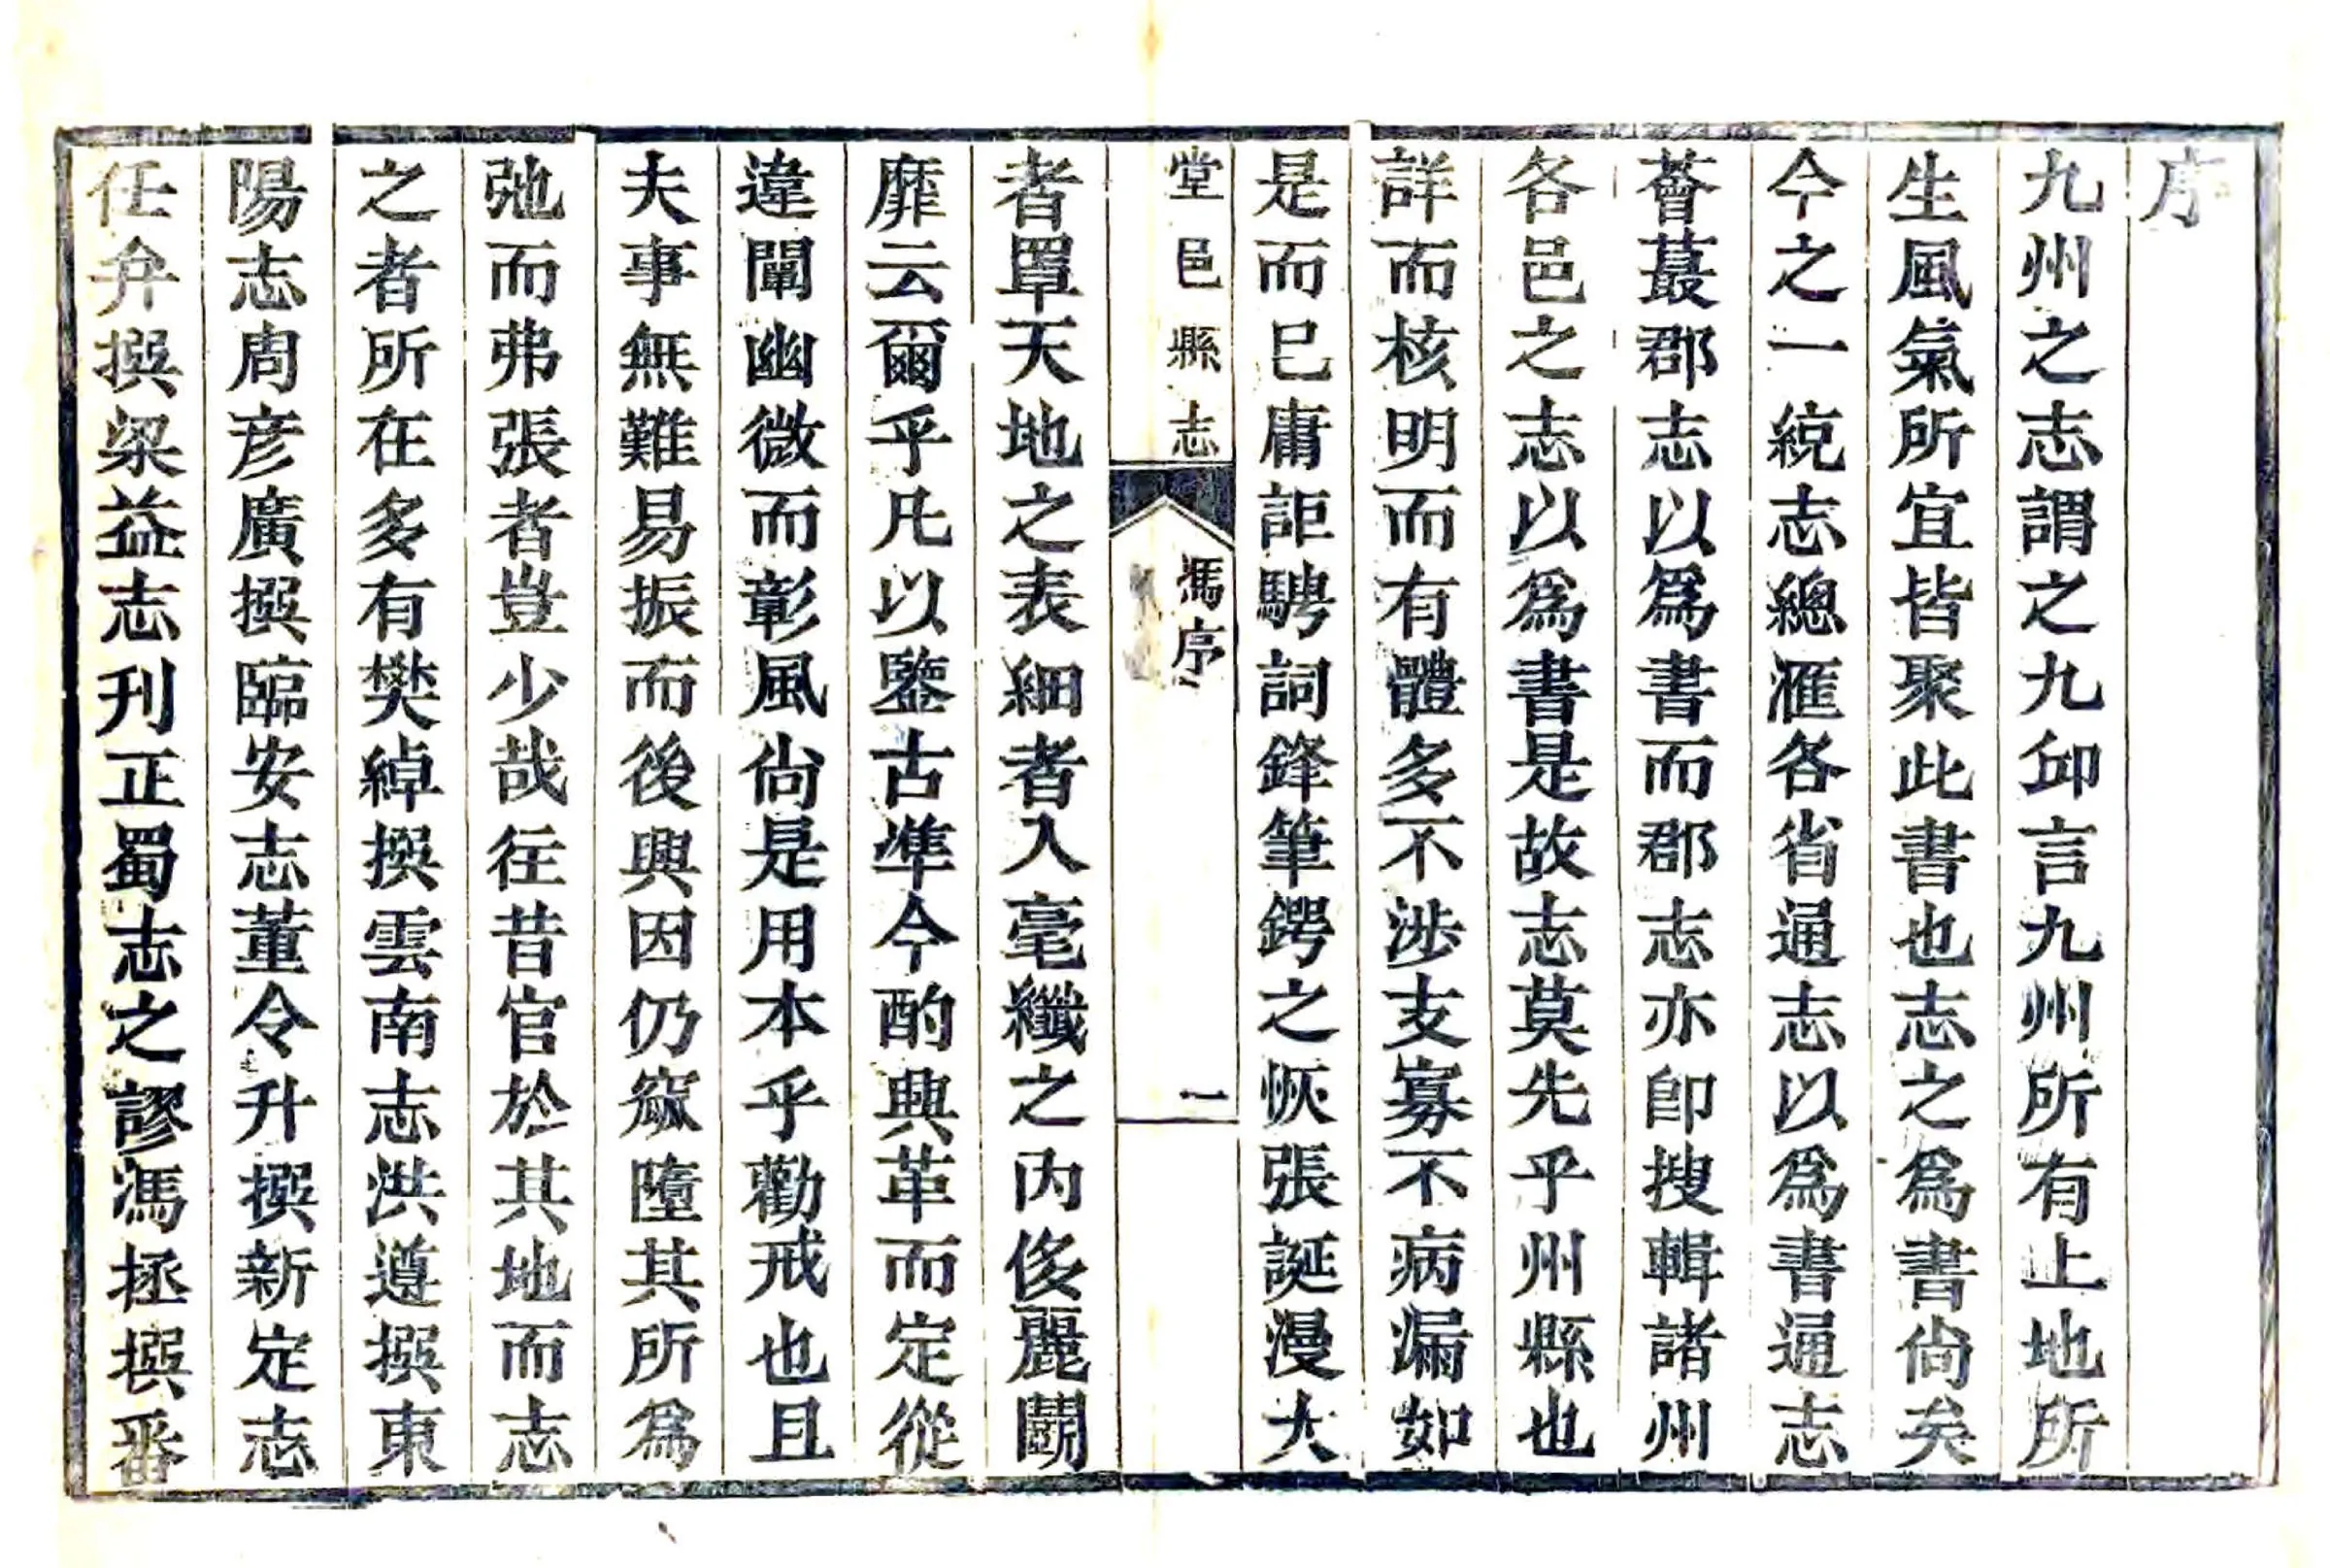 序
九州之志謂之九邱言九州所有土地所
生風氣所宜皆聚此書也志之為書尙矣
今之一統志總滙各省通志以為書通志
薈蕞郡志以為書而郡志亦卽搜輯諸州
各邑之志以為書是故志莫先乎州縣也
詳而核明而有體多不涉支寡不病漏如
是而已庸詎騁詞鋒筆鍔之恢張誕漫大
堂邑縣志
馮序
一
者罩天地之表細者入毫纖之內侈麗鬬
靡云爾乎凡以鑒古準今酌典革而定從
違闡幽微而彰風尙是用本乎勸戒也且
夫事無難易振而後興因仍窳墮其所為
弛而弗張者豈少哉徃昔官於其地而志
之者所在多有樊綽撰雲南志洪遵撰東
陽志周彥廣撰臨安志董令升撰新定志
任弁撰梁益志刊正蜀志之謬馮拯撰番